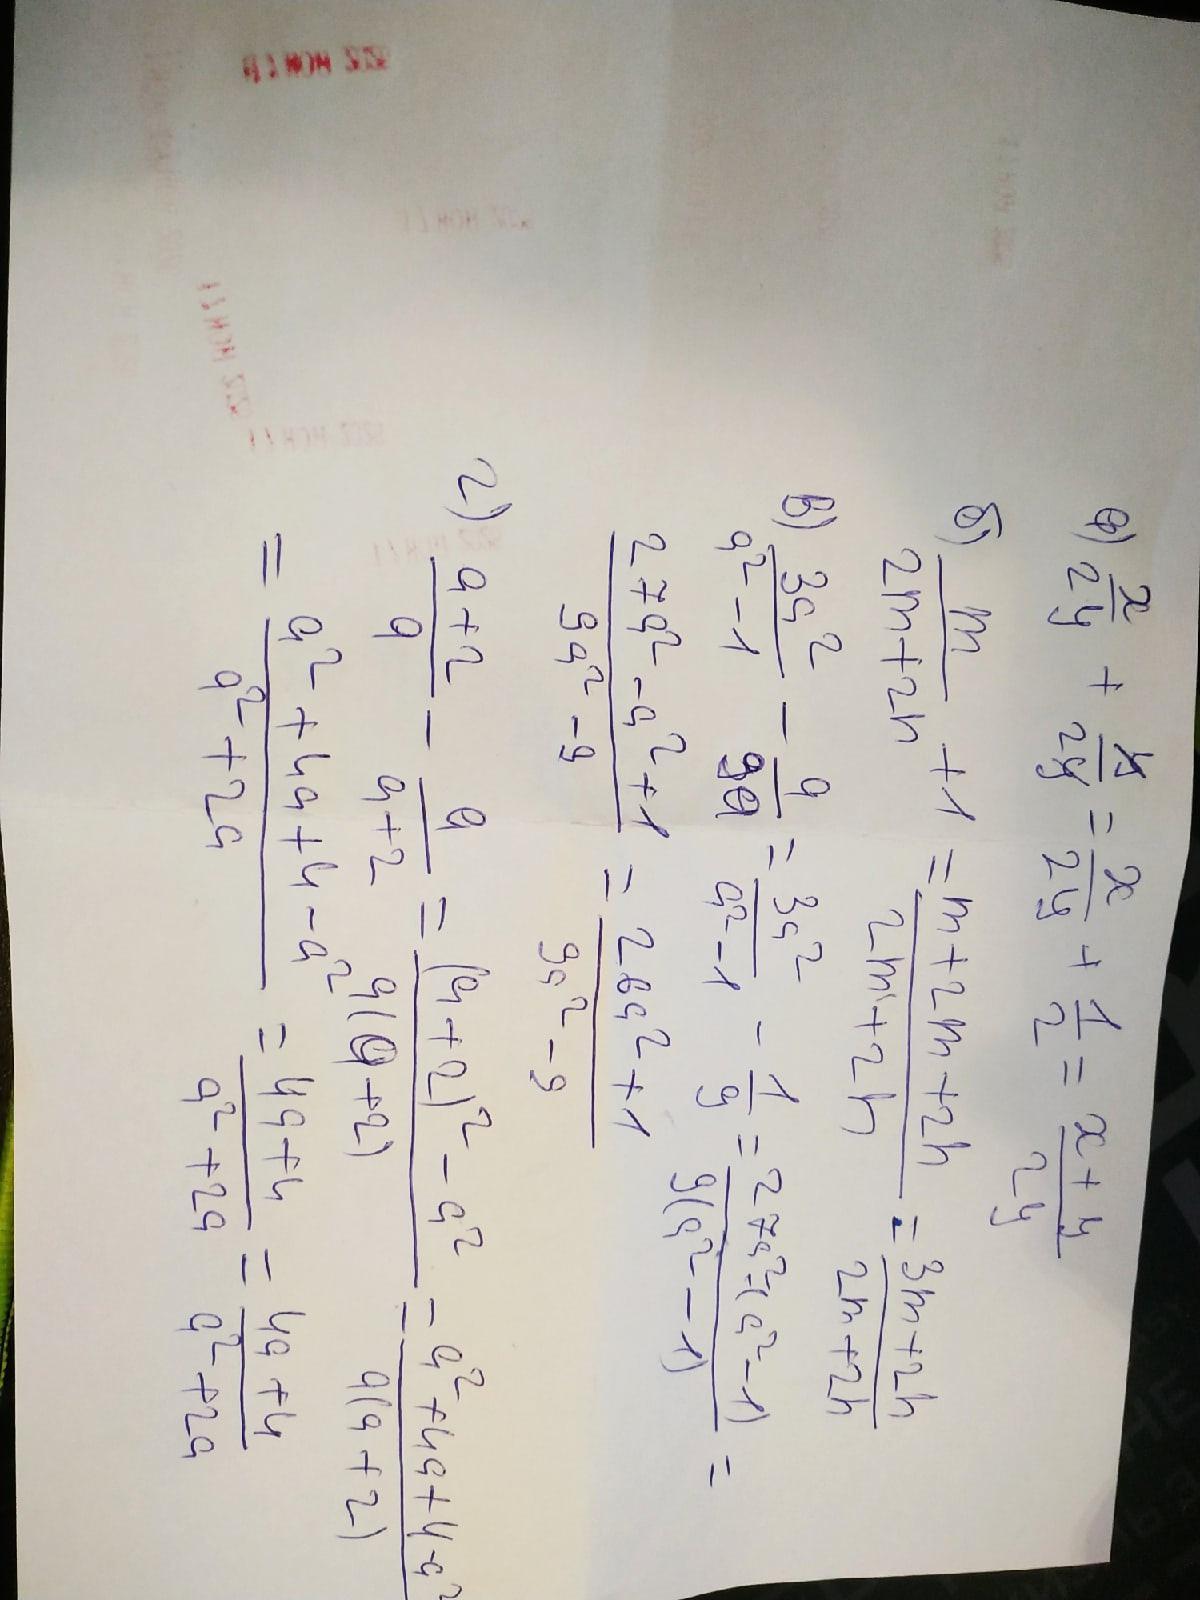 а) x/2y + y/2y = x/2y + 1/2 = x+y/2y
б) m/2m+2n + 1 = m+2m+2n/2m+2n = 3m+2n/2m+2n
в) 3a²/a²-1 - a/9a = 3a²/a²-1 - 1/9 = 27a²-(a²-1)/9(a²-1) =
27a²-a²+1/9a²-9 = 26a²+1/9a²-9
г) a+2/a - a/a+2 = (a+2)²-a²/a(a+2) = a²+4a+4-a²/a(a+2)
= a²+4a+4-a²/a²+2a = 4a+4/a²+2a = 4a+4/a²+2a